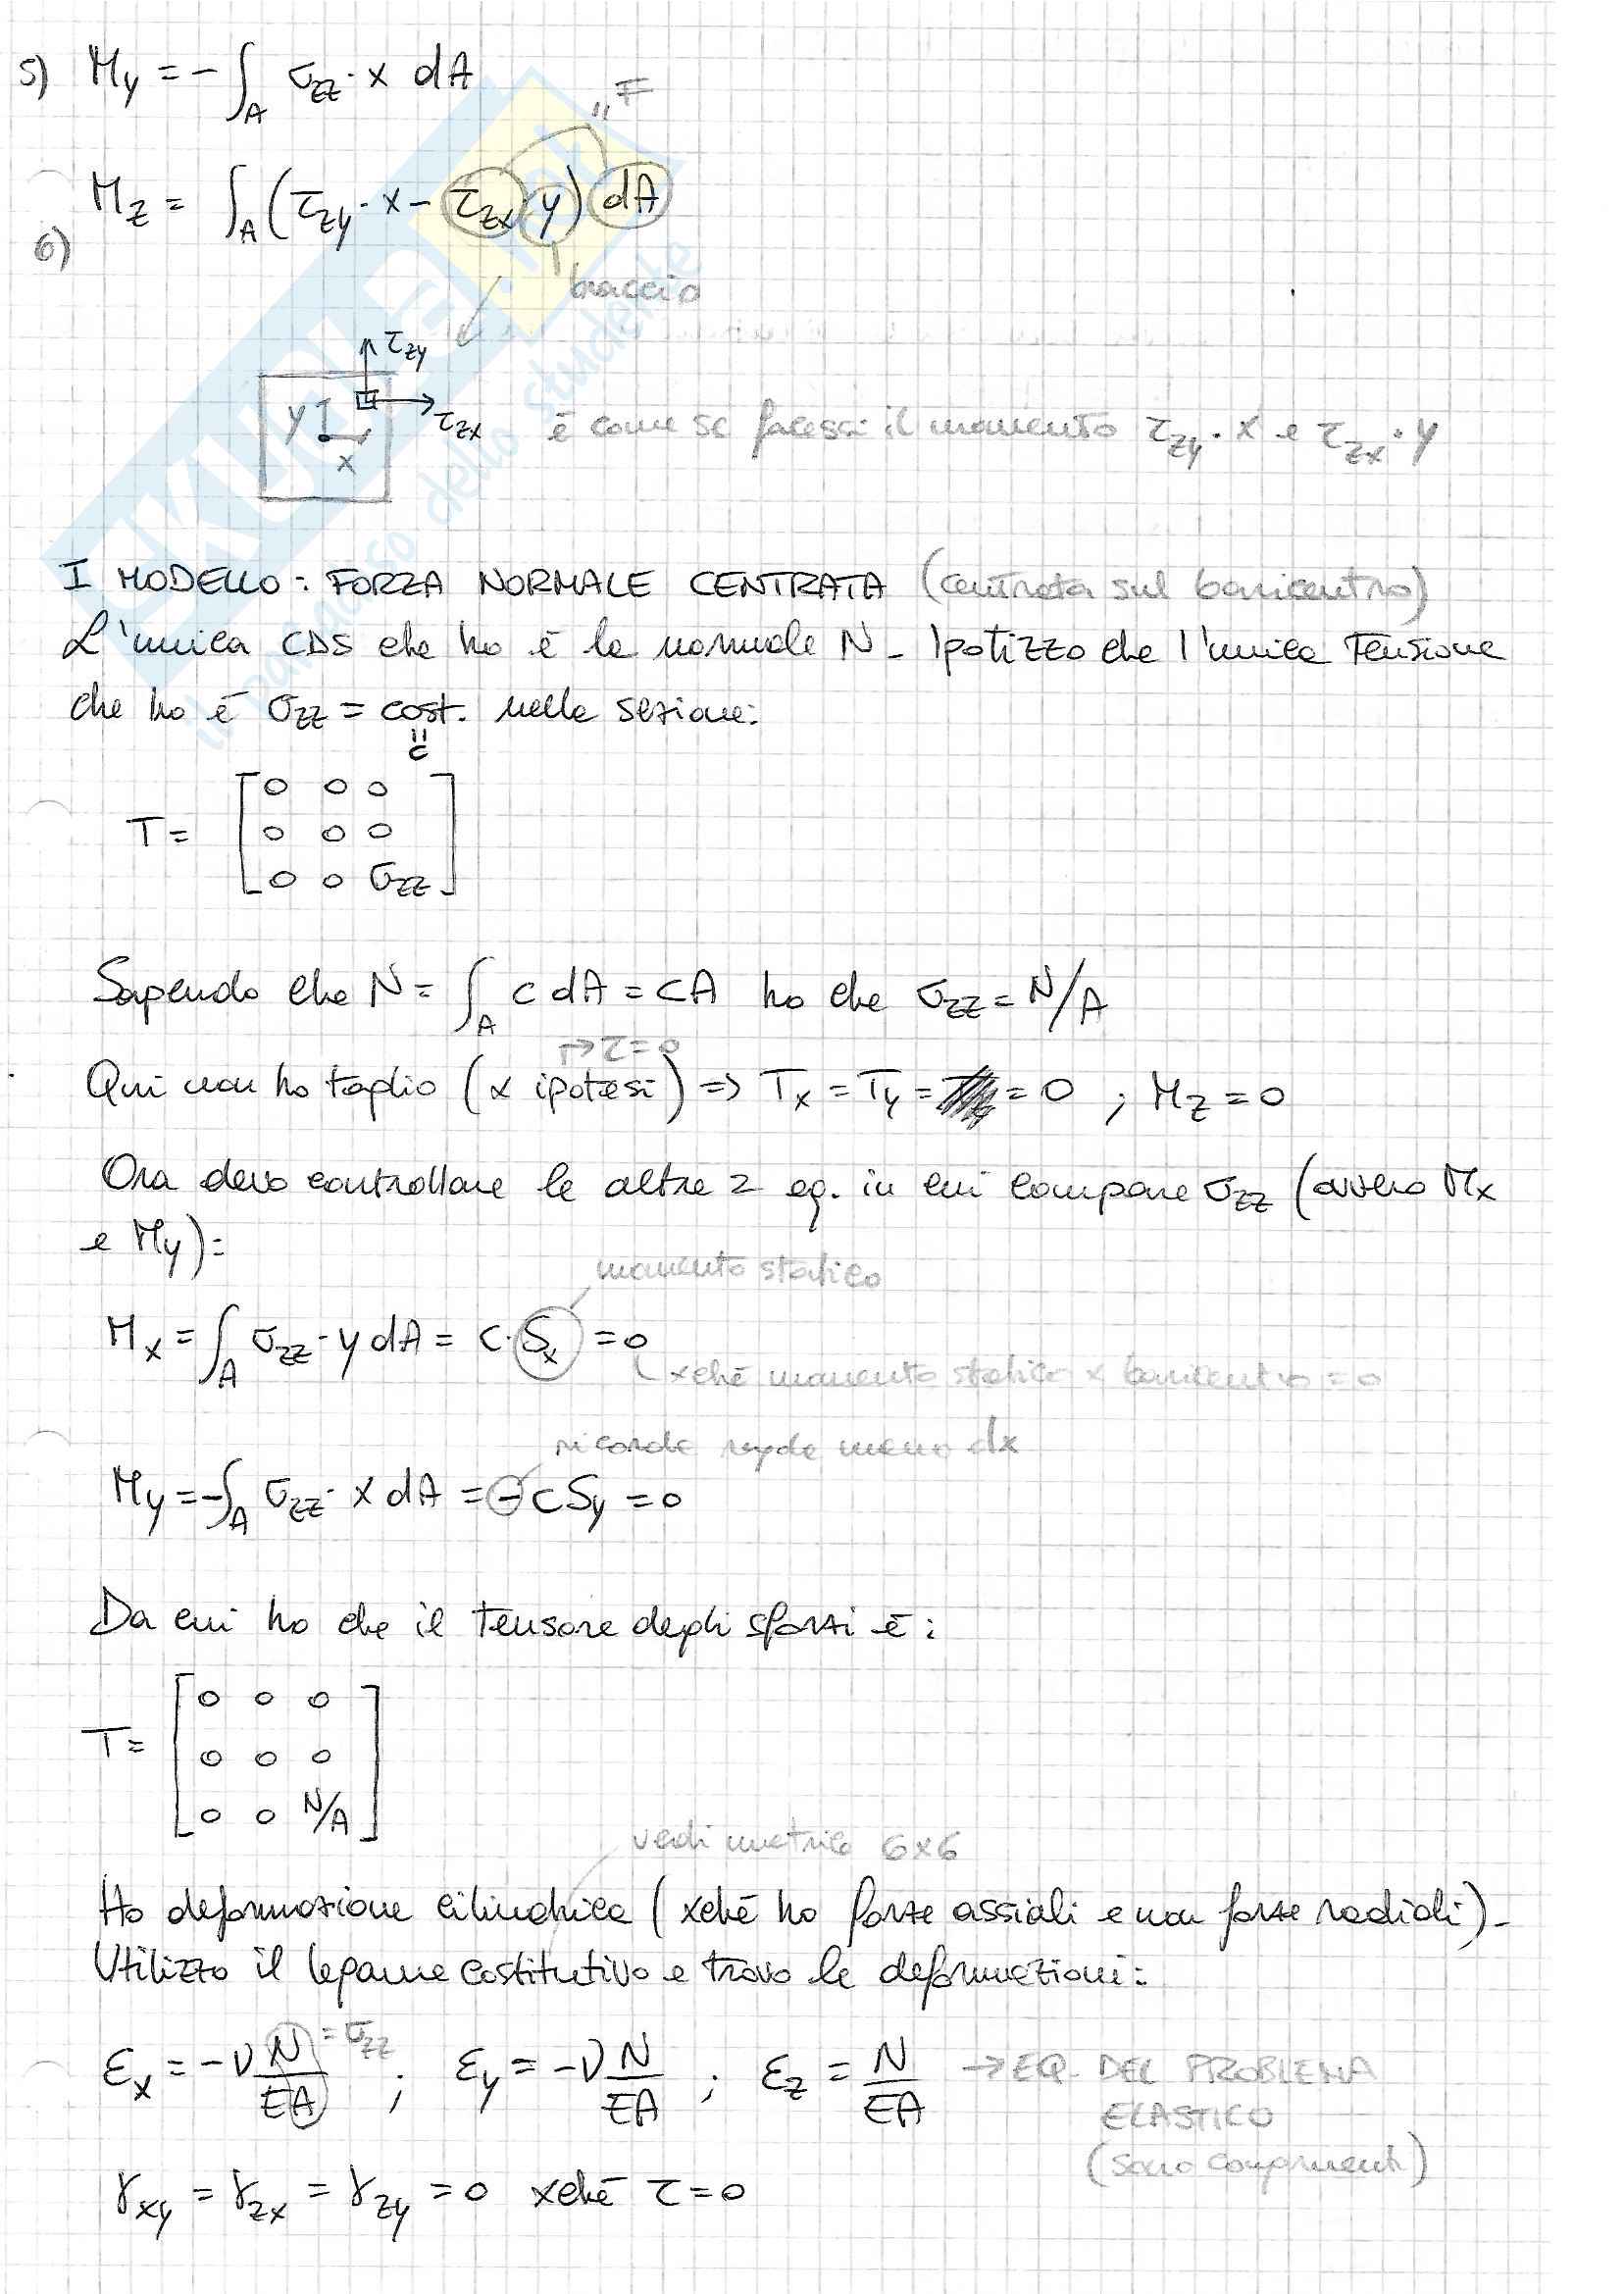 5) My = - ∫A σzz · x dA
" F
6) Mz = ∫A (τzy · x - τzx · y) dA
braccio
τzy
τzx
y
x
è come se facessi il momento τzy · x e τzx · y
I MODELLO: FORZA NORMALE CENTRATA (centrata sul baricentro)
L'unica CDS che ho è la normale N - Ipotizzo che l'unica tensione
che ho è σzz = cost. nella sezione:
"
c
T = [0 0 0
0 0 0
0 0 σzz]
Sapendo che N = ∫A c dA = cA ho che σzz = N/A
↦ τ = 0
Qui non ho taglio (x ipotesi) => Tx = Ty = = 0 ; Mz = 0
Ora devo controllare le altre 2 eq. in cui compare σzz (ovvero Mx
e My):
momento statico
Mx = ∫A σzz · y dA = c · Sx = 0
xché momento statico x baricentro = 0
ricorda regola mano dx
My = -∫A σzz · x dA = - c Sy = 0
Da cui ho che il tensore degli sforzi è:
T = [0 0 0
0 0 0
0 0 N/A]
vedi matrice 6x6
Ho deformazione cilindrica (xché ho forze assiali e non forze radiali) -
Utilizzo il legame costitutivo e trovo le deformazioni:
= σzz
εx = -ν N/EA ; εy = -ν N/EA ; εz = N/EA → EQ. DEL PROBLEMA
ELASTICO
(sono componenti)
γxy = γzx = γzy = 0 xché τ = 0